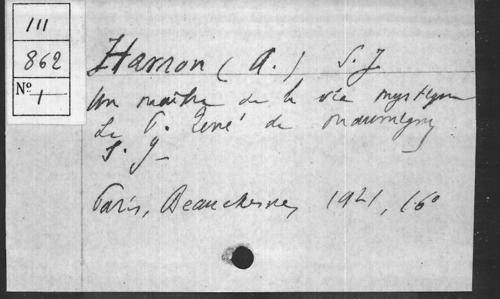 III
862
N° 1
Hamon (A.) S. J.
Un maître de la vie mystique
Le P. René de Maumigny
S. J.
Paris, Beauchesne, 1921, 16°